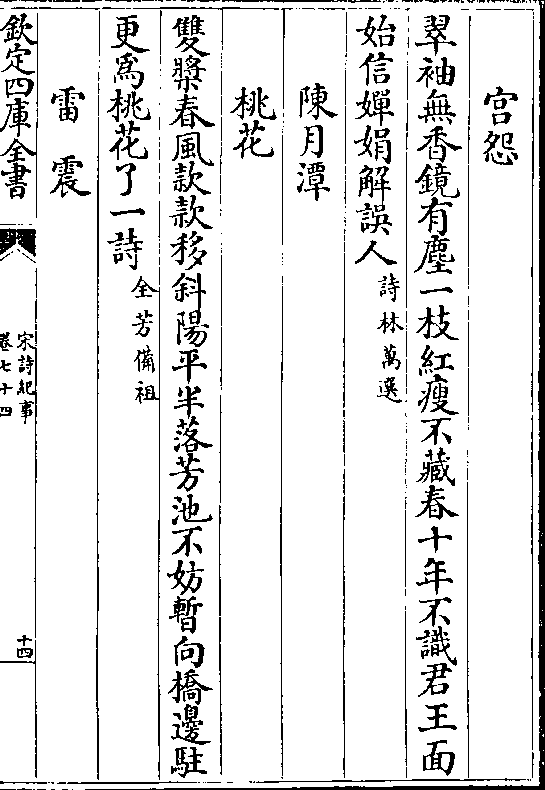 宮怨
翠袖無香鏡有塵一枝紅瘦不藏春十年不識君王面
始信嬋娟解誤人詩林萬選
陳月潭
桃花
雙槳春風款款移斜陽平半落芳池不妨暫向橋邊駐
更爲桃花了一詩全芳備祖
雷震
欽定四庫全書
宋詩紀事
卷七十四
十四